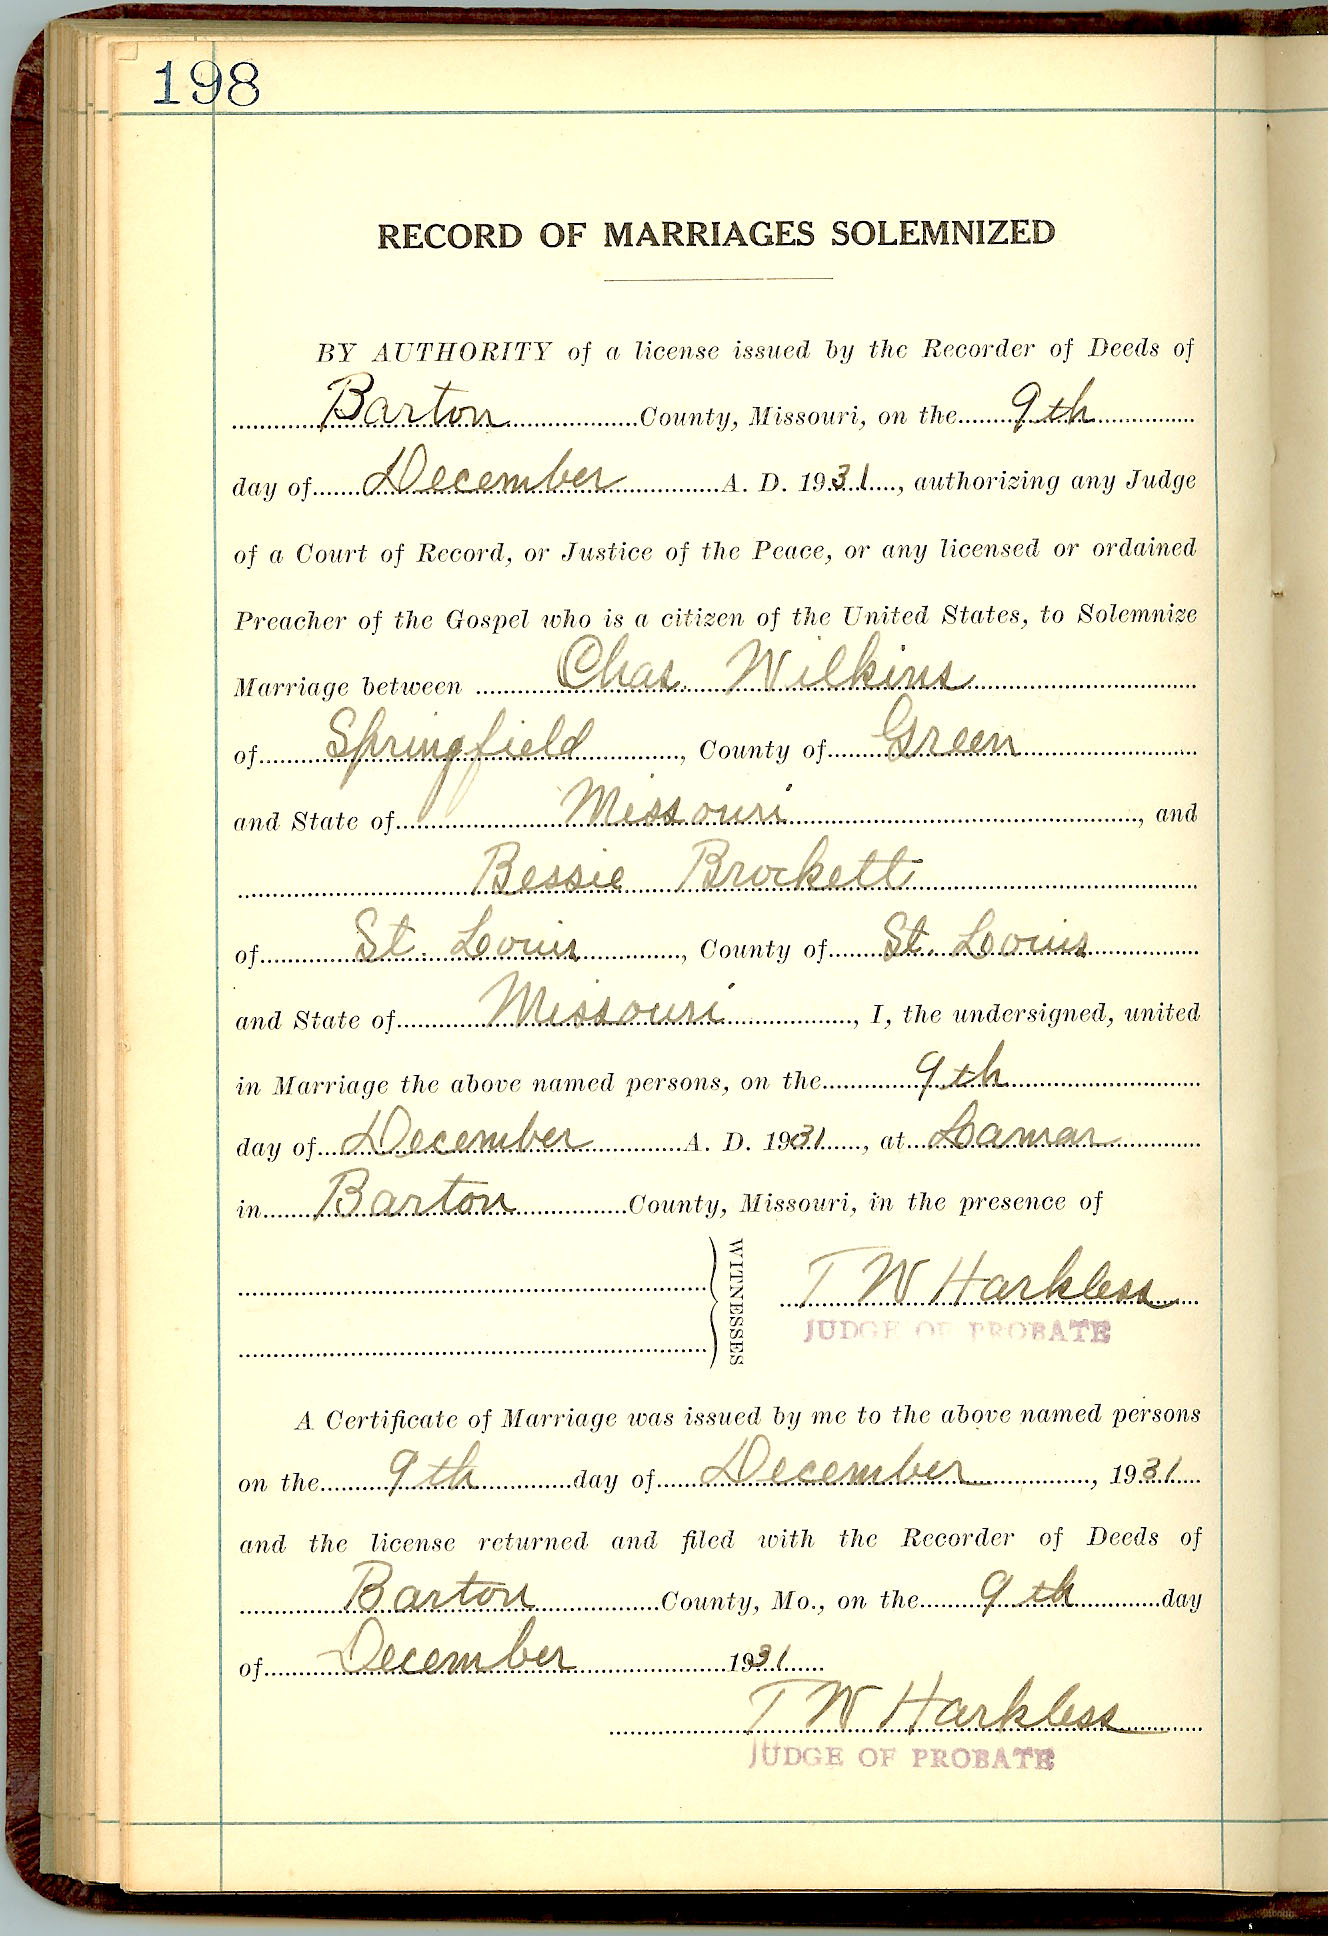 198
RECORD OF MARRIAGES SOLEMNIZED
BY AUTHORITY of a license issued by the Recorder of Deeds of
Barton County, Missouri, on the 9th
day of December A. D. 1931, authorizing any Judge
of a Court of Record, or Justice of the Peace, or any licensed or ordained
Preacher of the Gospel who is a citizen of the United States, to Solemnize
Marriage between Chas. Wilkins
of Springfield, County of Green
and State of Missouri, and
Bessie Brockett
of St. Louis, County of St. Louis
and State of Missouri, I, the undersigned, united
in Marriage the above named persons, on the 9th
day of December A. D. 1931, at Lamar
in Barton County, Missouri, in the presence of
WITNESSES
T W Harkless
JUDGE OF PROBATE
A Certificate of Marriage was issued by me to the above named persons
on the 9th day of December, 1931
and the license returned and filed with the Recorder of Deeds of
Barton County, Mo., on the 9th day
of December 1931
T W Harkless
JUDGE OF PROBATE